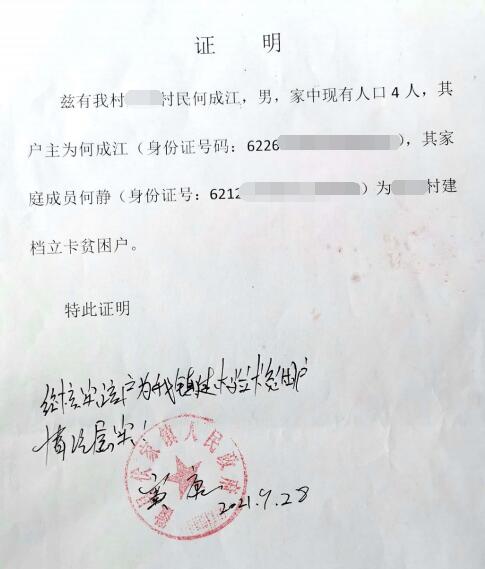 证 明
兹有我村 村民何成江，男，家中现有人口4人，其
户主为何成江（身份证号码：6226 ），其家
庭成员何静（身份证号：6212 ）为 村建
档立卡贫困户。
特此证明
经核实该户为我镇建档立卡贫困户
情况属实！
镇人民政府
2021.9.28